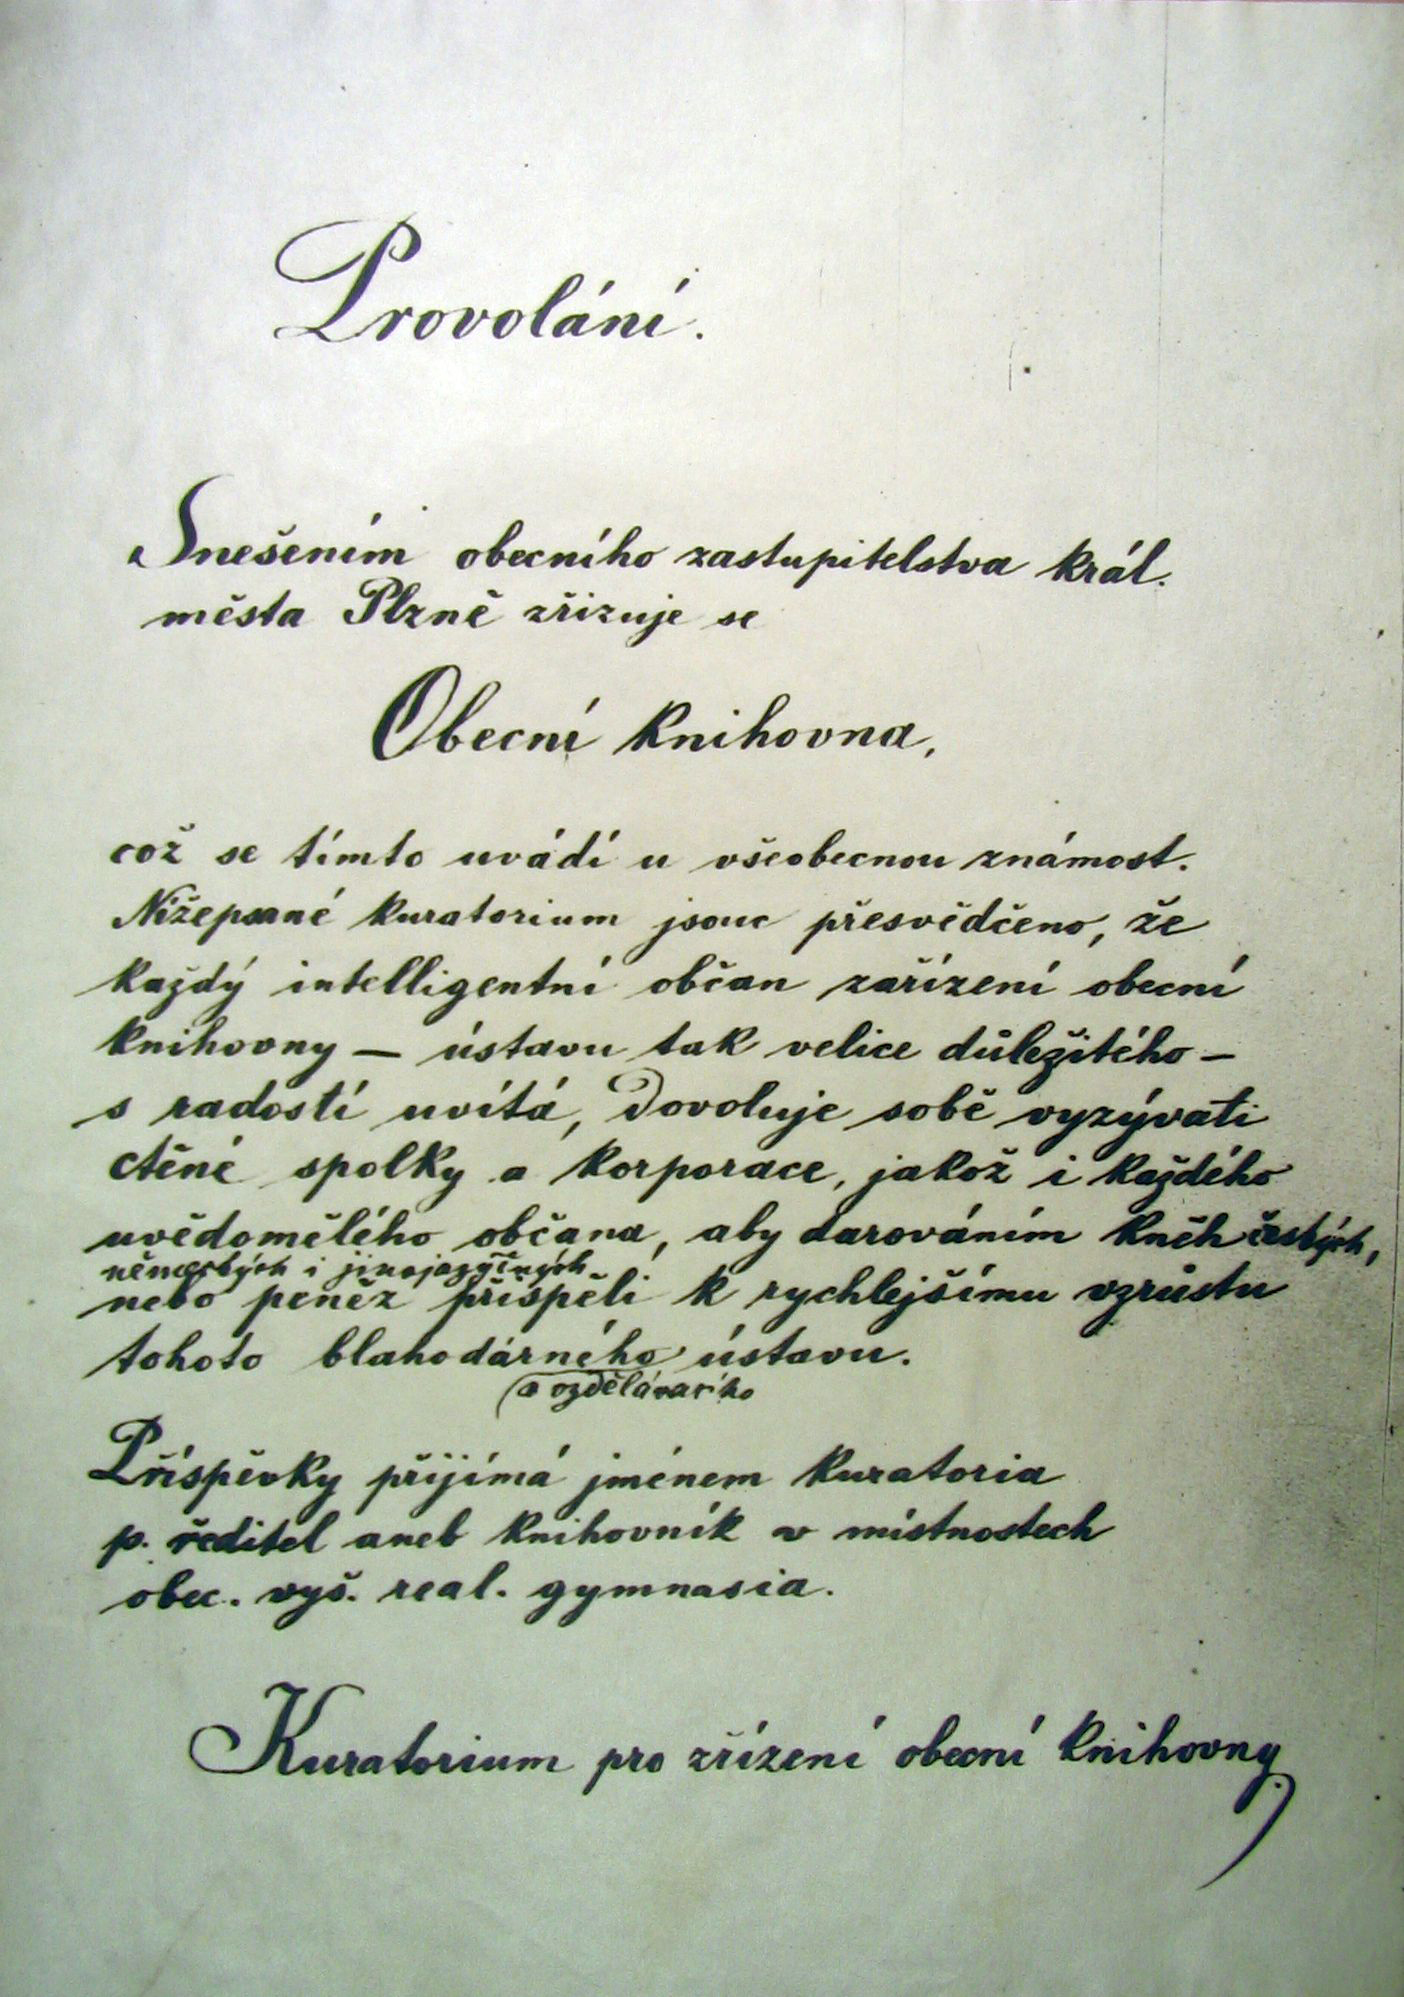 Provolání.
Snešením obecního zastupitelstva král.
města Plzně zřizuje se
Obecní knihovna,
což se tímto uvádí u všeobecnou známost.
Nížepsané kuratorium jsouc přesvědčeno, že
každý intelligentní občan zařízení obecní
knihovny — ústavu tak velice důležitého —
s radostí uvítá, dovoluje sobě vyzývati
ctěné spolky a korporace, jakož i každého
uvědomělého občana, aby darováním kněh českých,
německých i jinojazyčných
nebo peněz přispěli k rychlejšímu vzrůstu
tohoto blahodárného ústavu.
a vzdělávacího
Příspěvky přijímá jménem kuratoria
p. ředitel aneb knihovník v místnostech
obec. vyš. real. gymnasia.
Kuratorium pro zřízení obecní knihovny.